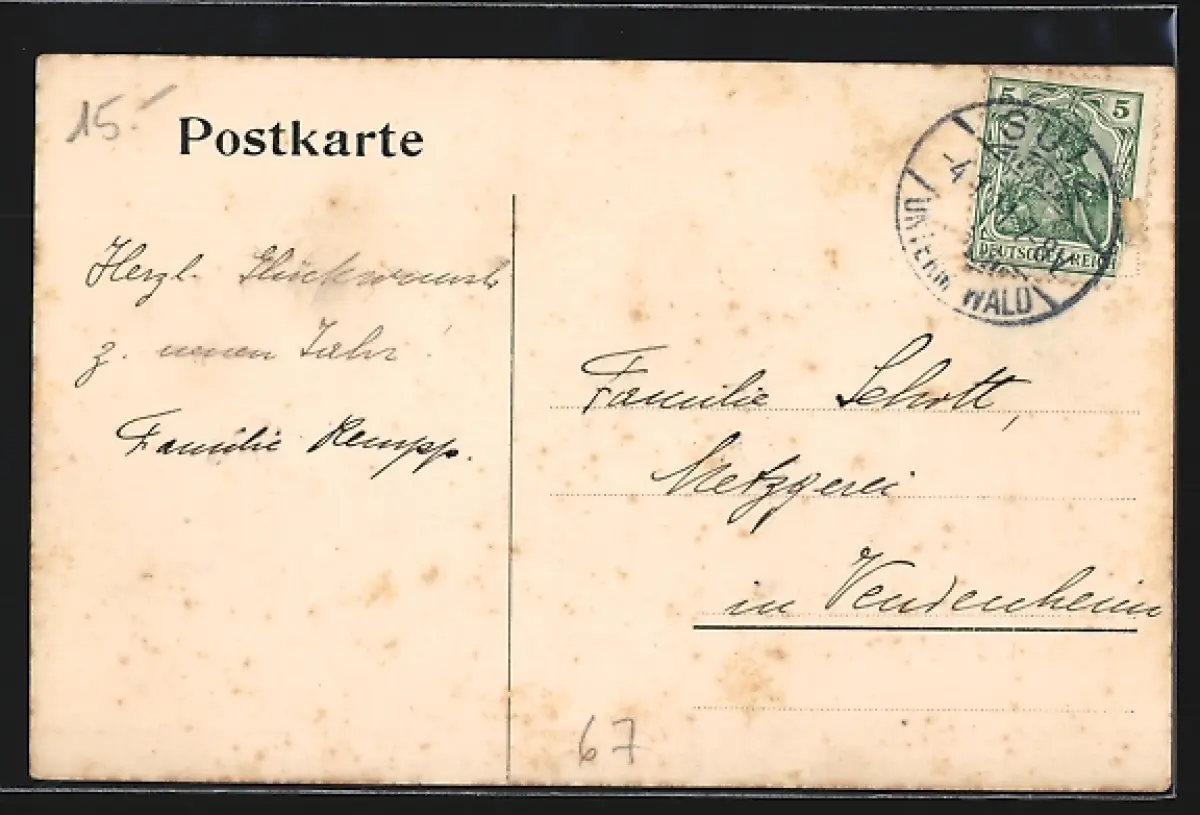 15.-
Postkarte
5 5
DEUTSCHES REICH
SULZ
UNTERM WALD
Herzl. Glückwunsch
z. neuen Jahr!
Familie Kempp.
Familie Schott,
Metzgerei
in Vendenheim
67